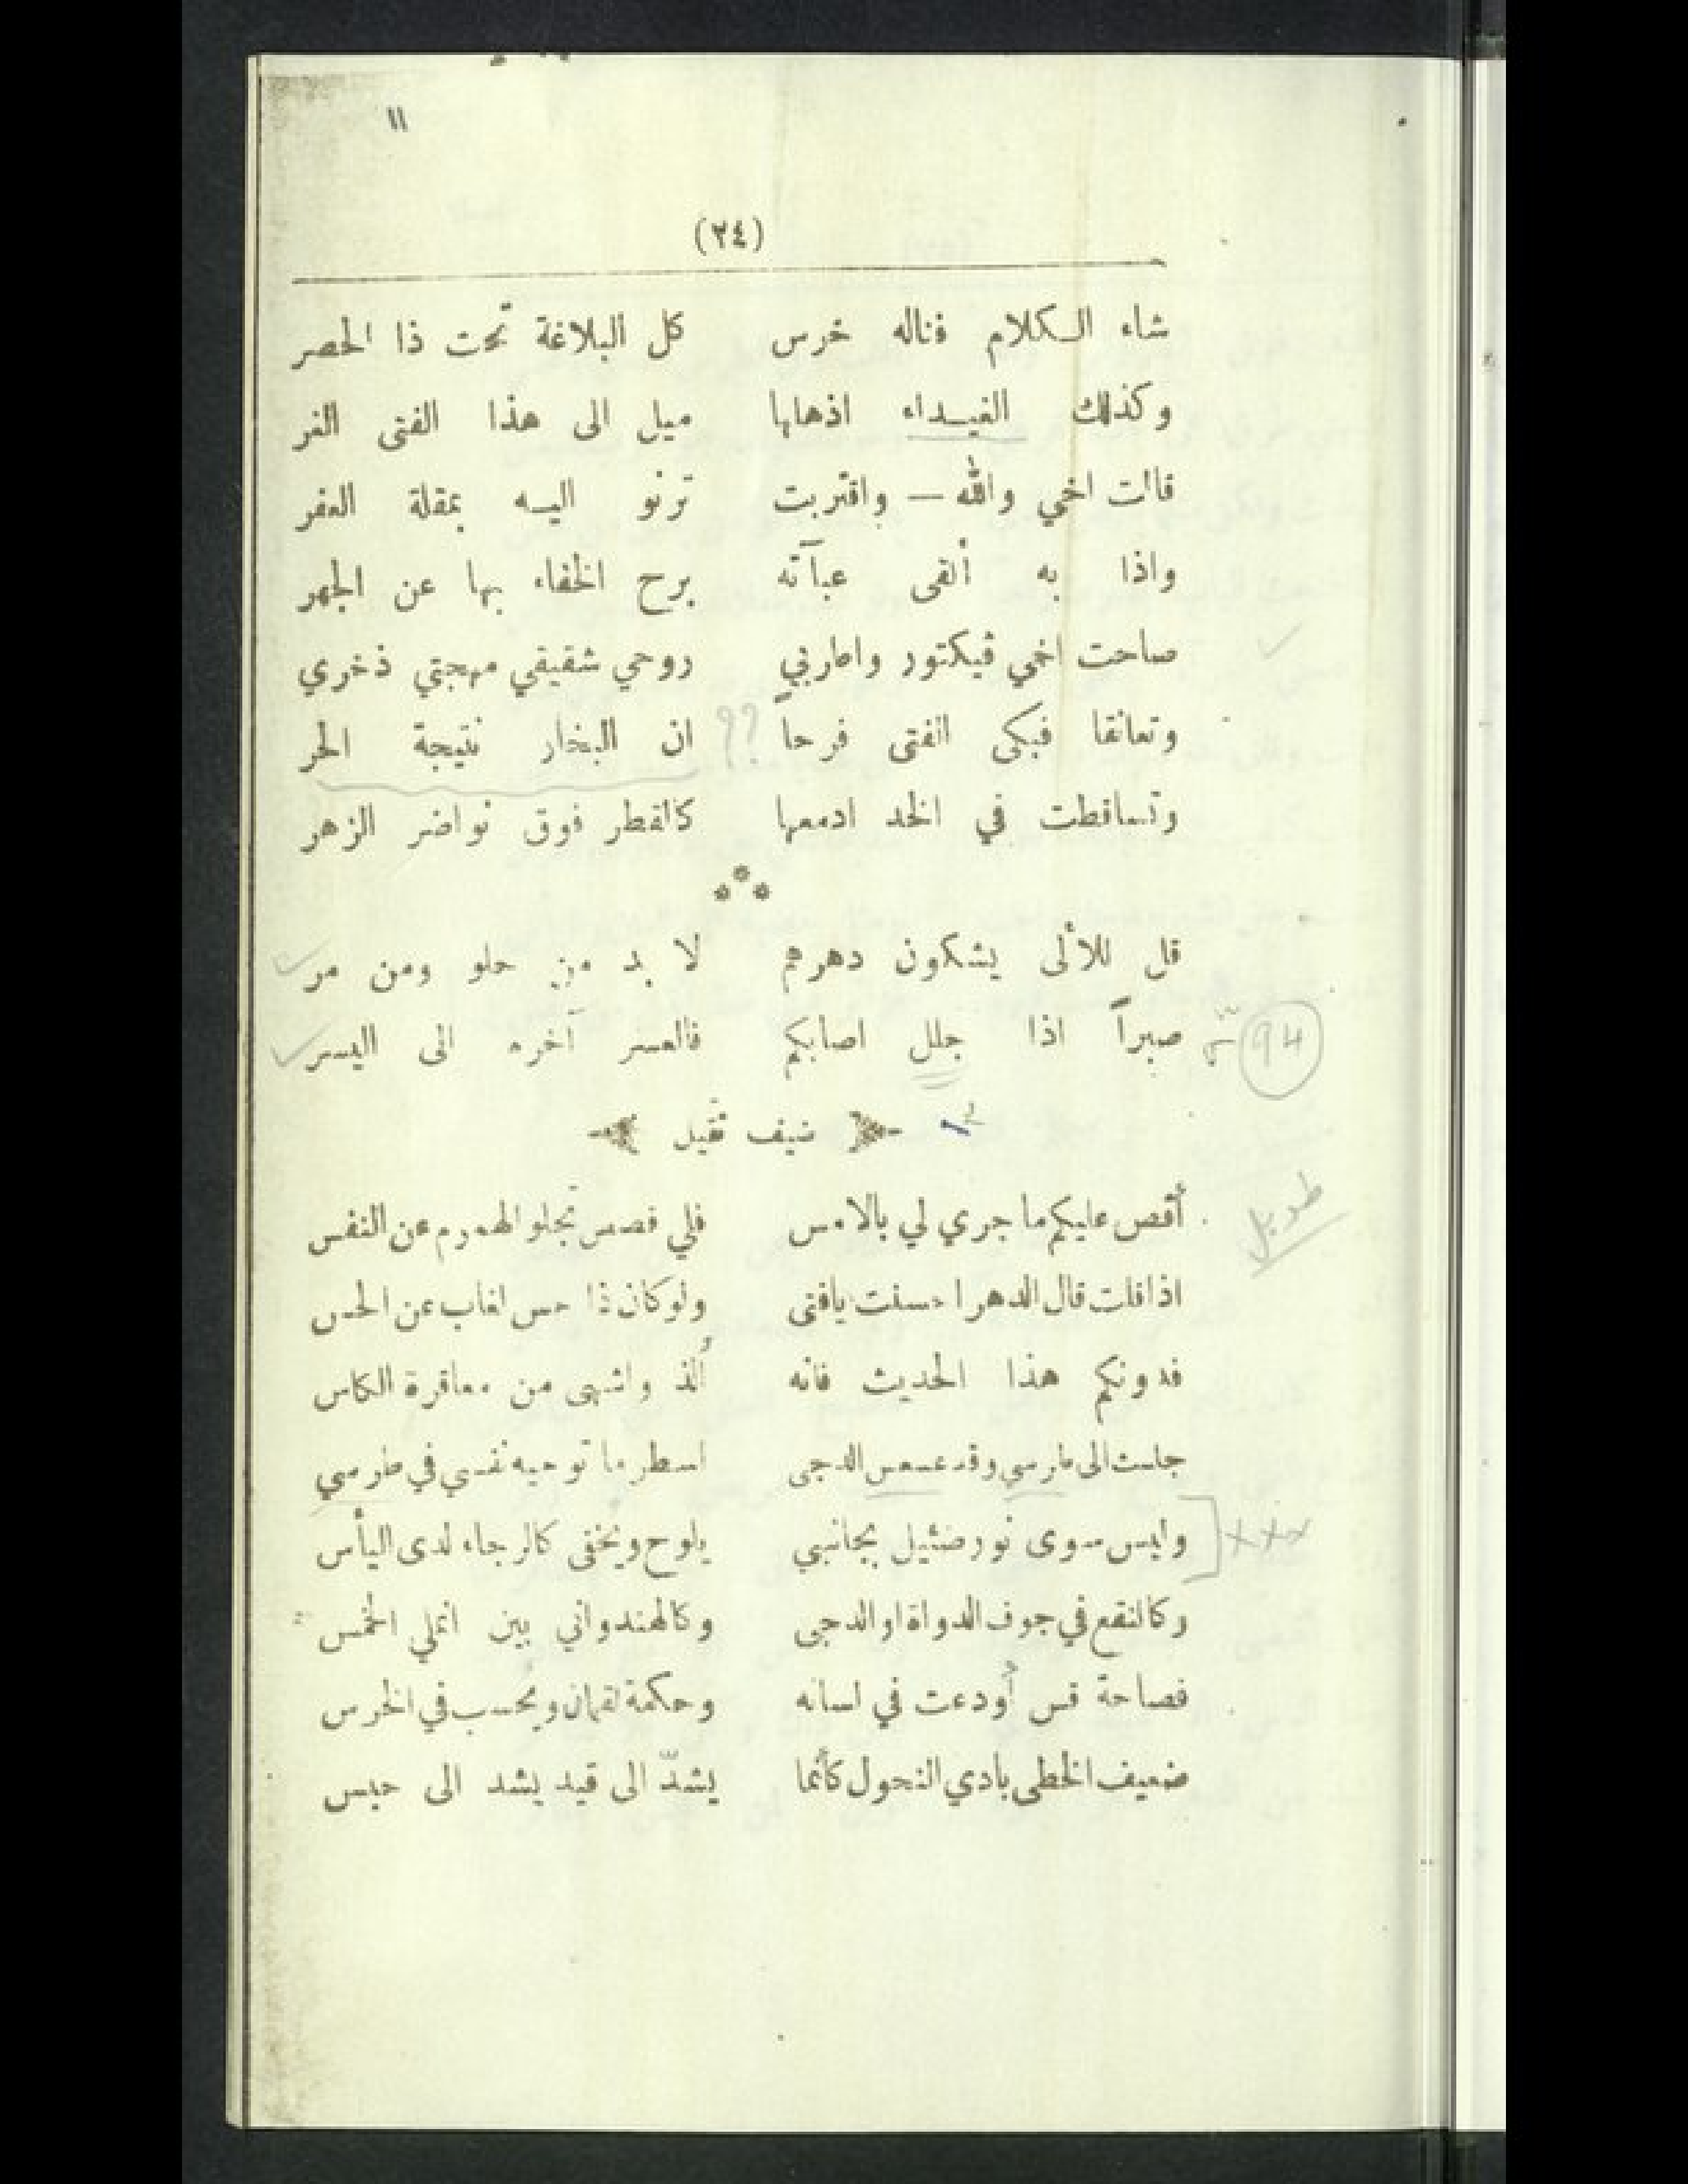 ١١
(٢٤)
شاء الكلام فناله خرس كل البلاغة تحت ذا الحصر
وكذلك الغيداء اذهابا ميل الى هذا الفتى الغر
قالت اخي والله — واقتربت ترنو اليه بمقلة العفر
واذا به ألقى عبآته برح الخفاء بها عن الجهر
صاحت اخي ڤيكتور واطربي روحي شقيقي مهجتي ذخري
وتعانقا فبكى الفتى فرحاً ?? ان البخار نتيجة الحر
وتساقطت في الخد ادمعها كالقطر فوق نواضر الزهر
***
قل للألى يشكون دهرهم لا بد من حلو ومن مر
94 صبراً اذا جلل اصابكم فالعسر آخره الى اليسر
ضيف ثقيل
طويل
أقص عليكم ما جرى لي بالامس فلي قصص تجلو الهموم عن النفس
اذا قلت قال الدهر احسنت يا فتى ولو كان ذا حس لغاب عن الحس
فدونكم هذا الحديث فانه ألذ واشهى من معاقرة الكاس
جلست الى طرسي وقد عسعس الدجى اسطر ما توحيه نفسي في طرسي
وليس سوى نور ضئيل بجانبي يلوح ويخفى كالرجاء لدى اليأس
xxx
وكالنقع في جوف الدواة او الدجى وكالهندواني بين انملي الخمس
فصاحة قس أودعت في لسانه وحكمة لقمان ويحسب في الخرس
ضعيف الخطى بادي النحول كأنما يشدّ الى قيد يشد الى حبس